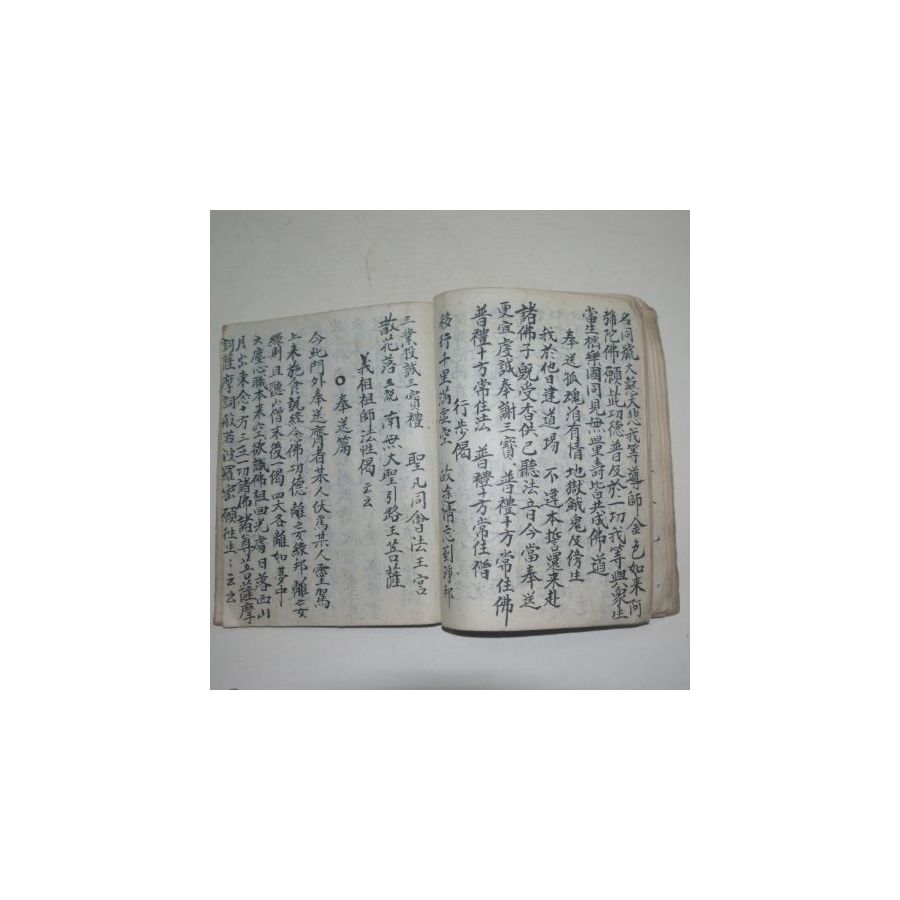 名同號大慈大悲我等導師金色如來阿
弥陀佛願此功德普及於一切我等與衆生
當生極樂國同見無量壽皆共成佛道
奉送孤魂洎有情地獄餓鬼及傍生
我於他日建道場 不違本誓還来赴
諸佛子旣受香供已聽法音今當奉送
更宜虔誠奉謝三寶 普禮十方常住佛
普禮十方常住法 普禮十方常住僧
行步偈
移行千里滿虛空 故途情忘到淨邦
三業投誠三寶禮 聖凡同會法王宮
散花落三說 南無大聖引路王菩薩
義祖祖師法性偈 云云
○ 奉送篇
今此門外奉送齊者某人伏爲某人靈駕
上来施食說經念佛功德離妄緣邪離妄
緣則且聽山僧末後一偈四大各離如夢中
六塵心識本来空欲識佛祖回光處日落西山
月出東念十方三三一切諸佛諸尊菩薩摩
訶薩摩訶般若波羅密願往生〻云云